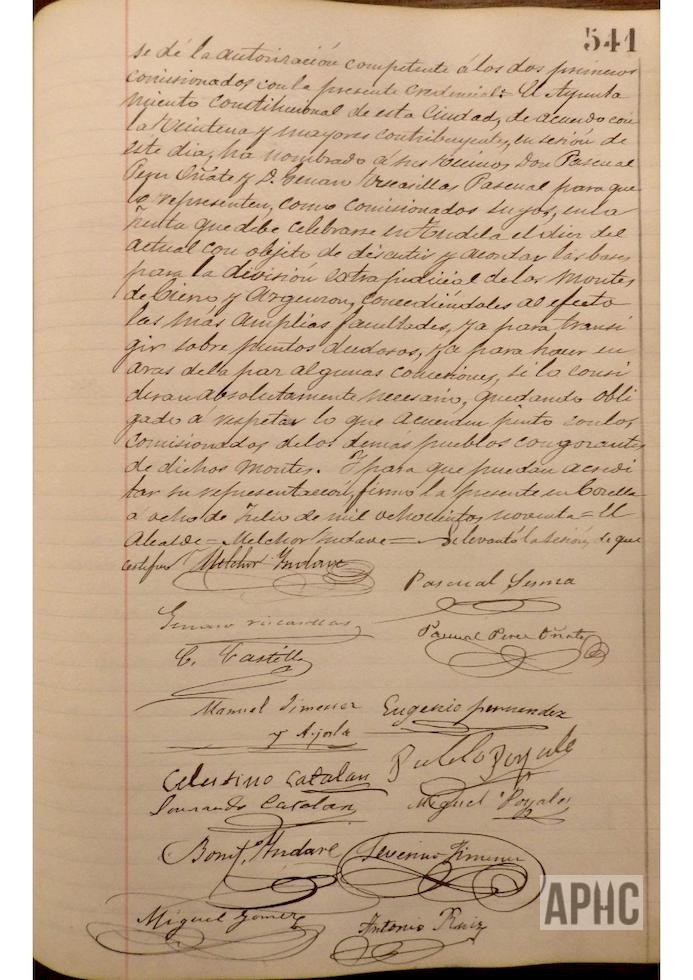 541
se dé la autorización competente á los dos primeros
comisionados con la presente credencial: El Ayunta
miento Constitucional de esta Ciudad, de acuerdo con
la Veintena y mayores contribuyentes, en sesión de
este dia, ha nombrado a sus vecinos Don Pascual
Perez Oñate y D. Genaro Viscasillas Pascual para que
lo representen, como comisionados suyos, en la
Junta que debe celebrarse en Tudela el diez del
actual con objeto de discutir y acordar las bases
para la división extrajudicial de los Montes
de Cierzo y Argenzon, concediéndoles al efecto
las más amplias facultades, ya para transi
gir sobre puntos dudosos, ya para hacer en
aras de la paz algunas concesiones, si lo consi
deran absolutamente necesario, quedando obli
gado á respetar lo que acuerden junto con los
comisionados de los demás pueblos congozantes
de dichos Montes. Y para que puedan acredi
tar su representación, firmo la presente en Corella
á ocho de Julio de mil ochocientos noventa = El
Alcalde = Melchor Yndave = Se levantó la sesión, de que
certifico Melchor Yndave
Pascual Sesma
Genaro Viscasillas
Pascual Perez Oñate
C. Castillo
Manuel Jimenez
y Ayala
Eugenio Fernandez
Celestino Catalan
Pablo Poyales
Catalan
Miguel Poyales
Bonif. Yndave
Severino Jimenez
Miguel Gomez
Antonio Ruiz
APHC